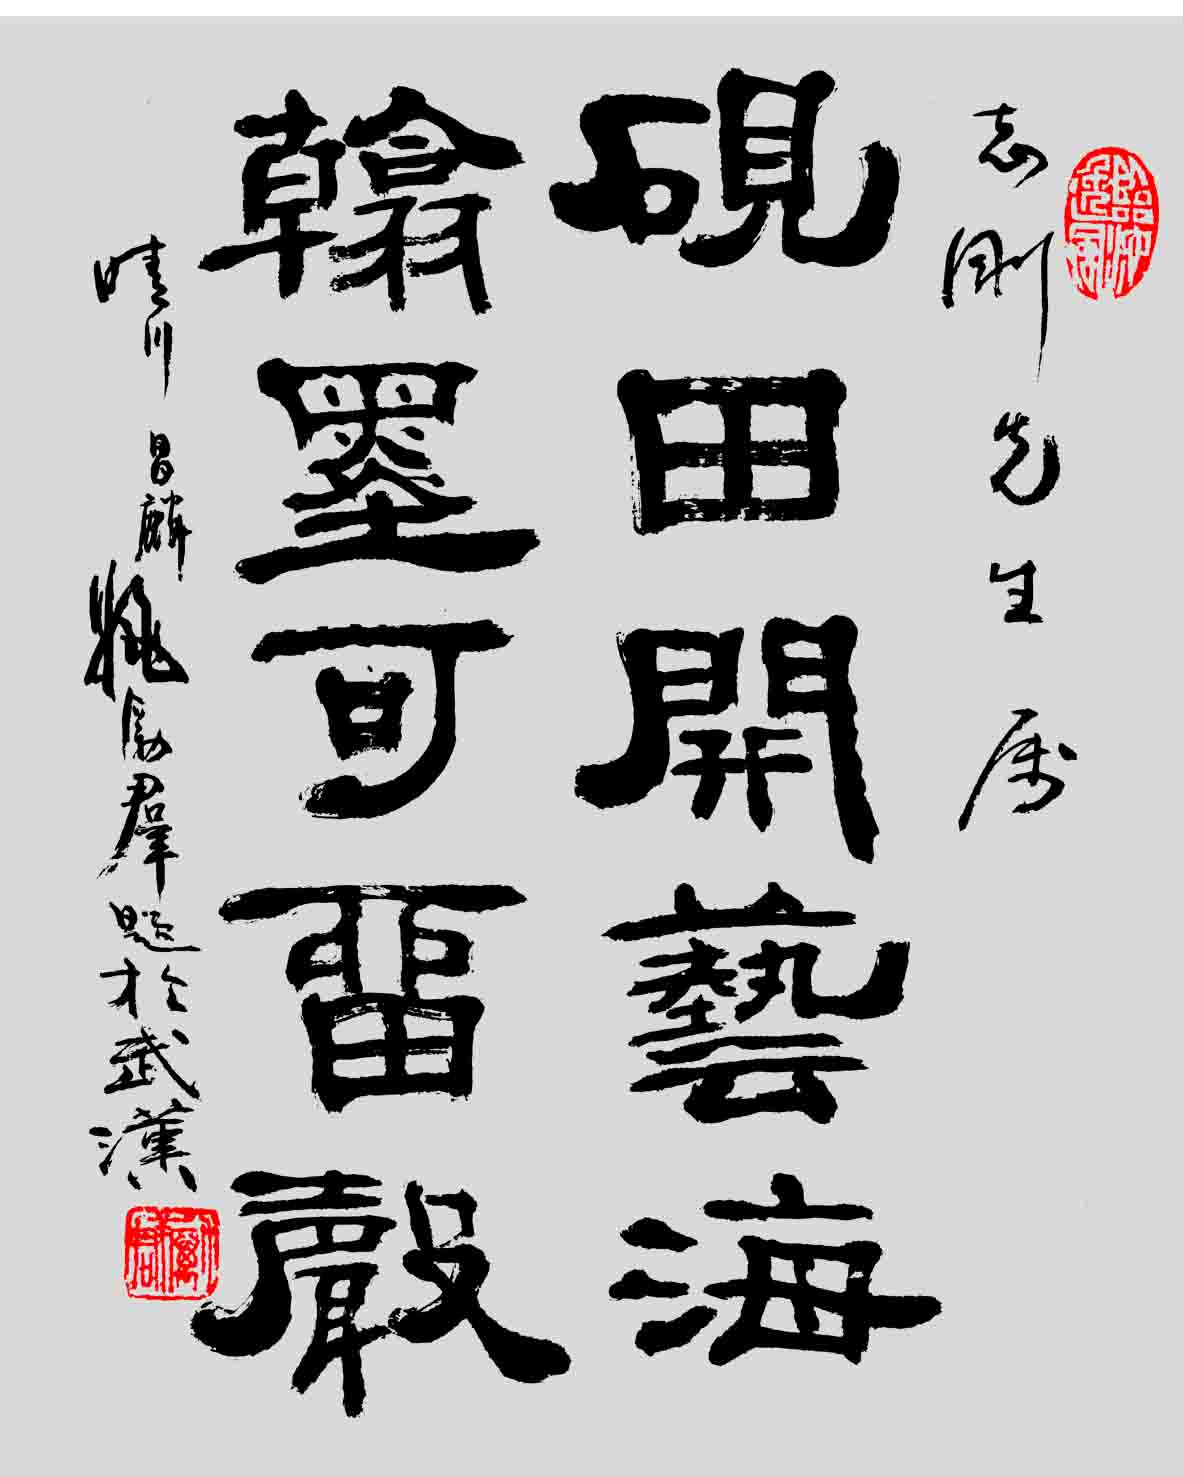 志剛先生属
硯田開藝海
翰墨可畱聲
晴川昌麟姚勵群題於武漢